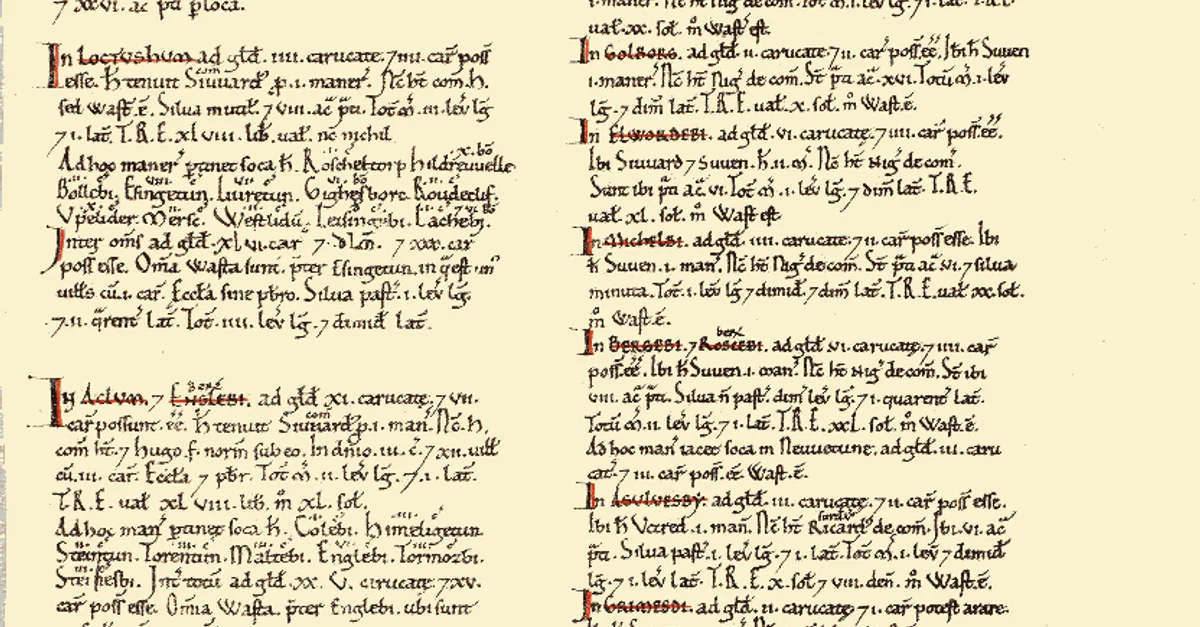 7 xxvi. ac p̃ti ꝑ loca.
In Loctushum ad gld̃. iiii. carucate. 7 iii. car̃ poss̃
esse. H̃ tenuit Siuuard p̱. i. maner̃. N̄c ht̃ com̃. h.
sed Wast̃.ē. Silua minut̃. 7 viii. ac̃ p̃ti. Tot̃ m̃. iii. lev̄ lḡ
7 i. lat̃. T.R.E. xl viii. lib̃. ual̃. n̄c nichil.
Ad hoc maner̃ ptinet soca h̃. Roscheltorp Hildreuuelle
Bollebi. Esingetun. Liuretun. Gighesborc. Roudeclif.
Upelider. Merse. Westlidũ. Lesingebi. Lachebi.
Inter om̃s ad gld̃. xl vi. car̃ 7 dim̃. 7 xxx. car̃
poss̃ esse. Om̃a Wasta sunt. p̃ter Esingetun. in q̃ est un̄
uill̃s cũ. i. car̃. Eccl̃a sine pb̃ro. Silua past̃. i. lev̄ lḡ.
7 ii. q̃rent̃ lat̃. Tot̃. iiii. lev̄ lḡ. 7 dimid̃ lat̃.
In Actun. 7 Englebi. ad gld̃ xi. carucatę. 7 vii.
com̃
car̃ possunt. ēē. H̃ tenuit Siuuard p̱. i. man̄. N̄c. h,
com̃ ht̃. 7 Hugo f. norin̄ sub eo. In dn̄io. iii. c̃. 7 xii. uill̃
cũ. iii. car̃. Eccl̃a 7 pb̃r. Tot̃ m̃. ii. lev̄ lḡ. 7 i. lat̃.
T.R.E. ual̃ xl viii. lib̃. m̊ xl. sol̃.
Ad hoc man̄ ptinet soca h̃. Colebi. Himelige­tun
Steintun. Torentun. Maltebi. Englebi. Tormozbi.
Steinesbi. Int̃ totũ ad gld̃. xx. v. carucatę. 7 xv.
car̃ poss̃ esse. Om̃a Wasta. p̃ter Englebi. ubi sunt
ual̃. xx. sol̃. m̊ Wast̃ est.
In Golborg. ad gld̃. ii. carucate. 7 ii. car̃ poss̃.ēē. Ibi h̃ Suuen
i. maner̃. N̄c ht̃ Nig̃ de com̃. St̃ p̃ti ac̃. xvi. Totũ m̃. i. lev̄
lḡ. 7 dim̃ lat̃. T.R.E. ual̃. x. sol̃. m̊ Wast̃.ē.
In Elwordebi. ad gld̃. vi. carucatę. 7 iiii. car̃ poss̃.ēē.
Ibi Siuuard 7 Suuen. h̃. ii. m̃. N̄c ht̃ Nig̃ de com̃.
Sunt ibi p̃ti ac̃. vi. Tot̃ m̃. i. lev̄ lḡ. 7 dim̃ lat̃. T.R.E.
ual̃. xl. sol̃. m̊ Wast̃ est
In Michelbi. ad gld̃. iiii. carucate. 7 ii. car̃ poss̃ esse. Ibi
h̃ Suuen. i. man̄. N̄c ht̃ Nig̃ de com̃. St̃ p̃ti ac̃ vi. 7 silua
minuta. Tot̃. i. lev̄ lḡ 7 dimid̃. 7 dim̃ lat̃. T.R.E. ual̃ xx. sol̃.
m̊ Wast̃.ē.
berx
In Bergebi. 7 Roscebi. ad gld̃ vi. carucatę. 7 iiii. car̃
poss̃.ēē. Ibi h̃ Suuen. i. man̄. N̄c ht̃ Nig̃ de com̃. St̃ ibi
viii. ac̃ p̃ti. Silua ñ past̃. dim̃ lev̄ lḡ. 7 i. quarent̃ lat̃.
Totũ m̃. ii. lev̄ lḡ. 7 i. lat̃. T.R.E. xxl. sol̃. m̊ Wast̃.ē.
Ad hoc man̄ iacet soca in Neuuetune. ad gld̃. iii. caru
cat̃. 7 iii. car̃ poss̃. ēē. Wast̃.ē.
In Asuluesby. ad gld̃. iii. carucatę. 7 ii. car̃ poss̃ esse.
Ibi h̃ Uctred. i. man̄. N̄c ht̃ Ricard de com̃. Ibi. vi. ac̃
p̃ti. Silua past̃. i. lev̄ lḡ. 7 i. lat̃. Tot̃ m̃. i. lev̄ 7 dimid̃
lḡ. 7 i. lev̄ lat̃. T.R.E. x. sol̃ 7 viii. den̄. m̊ Wast̃.ē.
In Grimesbi. ad gld̃. ii. carucatę. 7 i. car̃ potest arare.